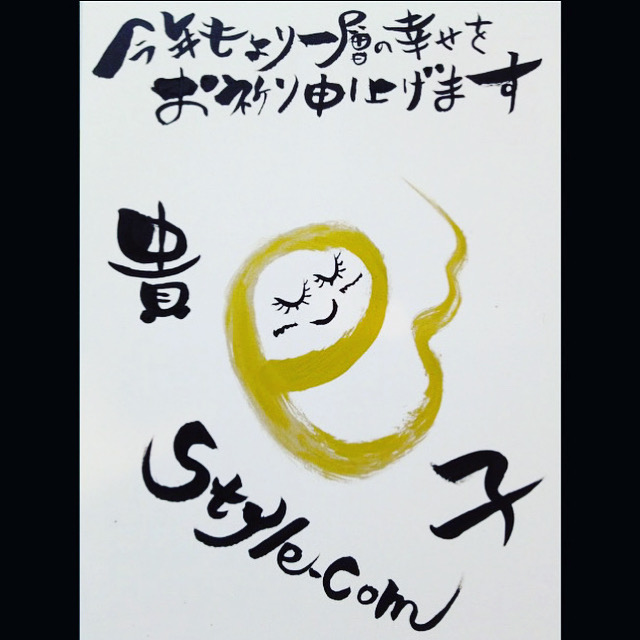 今年もより一層の幸せを
お祈り申し上げます
貴
e
子
Style.com